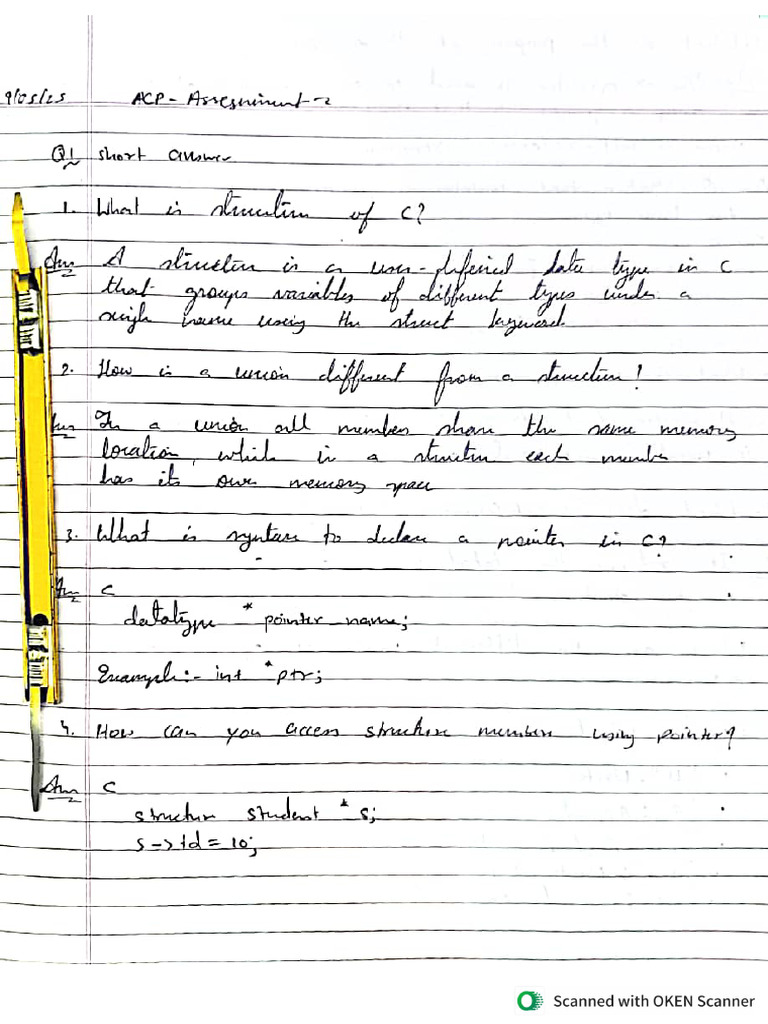 9/05/25 ACP - Assessment - 2
Q1 short answer
1. What is structure of C?
Ans A structure is a user-defined data type in C
that groups variables of different types under a
single name using the struct keyword.
2. How is a union different from a structure?
Ans In a union all members share the same memory
location, which in a structure each member
has its own memory space
3. What is syntax to declare a pointer in C?
Ans C
datatype * pointer_name;
Example:- int *ptr;
4. How can you access structure members using pointer?
Ans C
structure student * s;
s->id = 10;
Scanned with OKEN Scanner